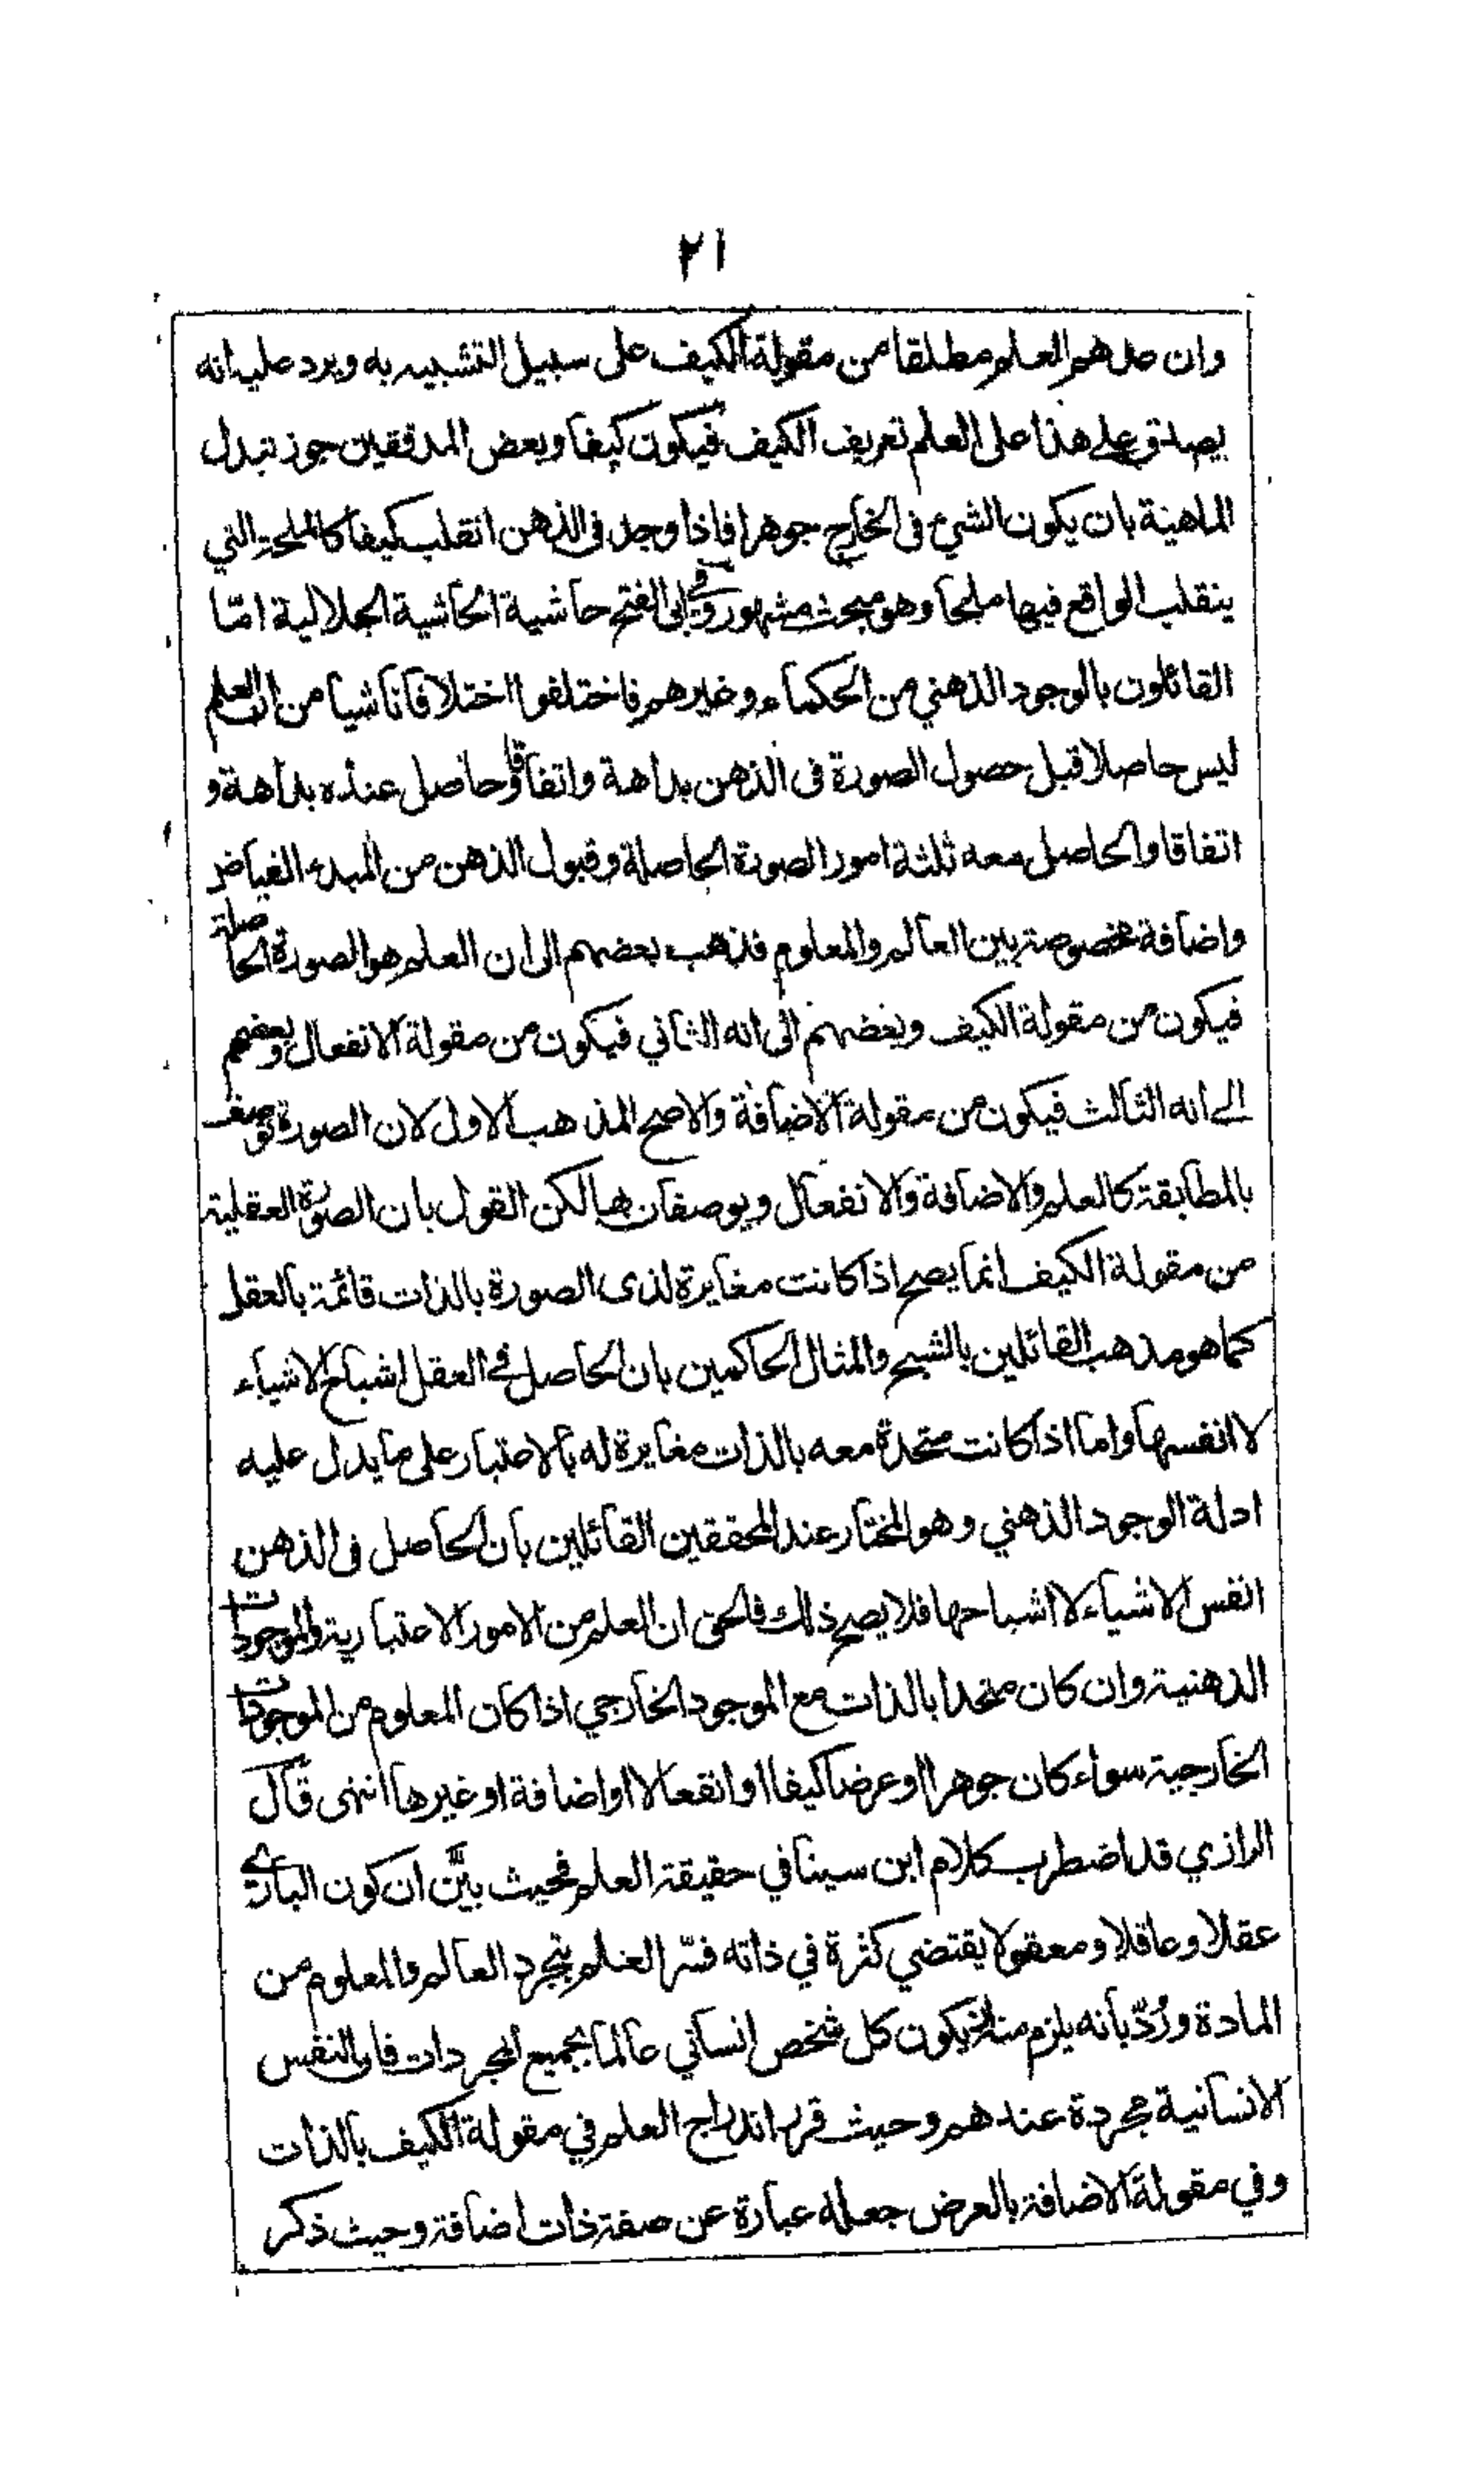 ٢١
وان عدهم العلم مطلقا من مقولة الكيف على سبيل التشبيه به ويرد عليه انه
يصدق على هذا على العلم تعريف الكيف فيكون كيفا وبعض المدققين جوز تبدل
الماهية بان يكون الشيء فى الخارج جوهرا فاذا وجد فى الذهن انقلب كيفا كالملحة التي
ينقلب الواقع فيها ملحا وهو مبحث مشهور وفي ابى الفتح حاشية الحاشية الجلالية امّا
القائلون بالوجود الذهني من الحكماء وغيرهم فاختلفوا اختلافا ناشيا من ان العلم
ليس حاصلا قبل حصول الصورة فى الذهن بداهة واتفاقا وحاصل عنده بداهة و
اتفاقا والحاصل معه ثلثة امور الصورة الحاصلة وقبول الذهن من المبدء الفياض
واضافة مخصوصة بين العالم والمعلوم فذهب بعضهم الى ان العلم هو الصورة الحاصلة
فيكون من مقولة الكيف وبعضهم الى انه الثاني فيكون من مقولة الانفعال وبعضهم
الى انه الثالث فيكون من مقولة الاضافة والاصح المذهب الاول لان الصورة توصف
بالمطابقة كالعلم والاضافة والانفعال ويوصفان بها لكن القول بان الصورة العقلية
من مقولة الكيف انما يصح اذا كانت مغايرة لذى الصورة بالذات قائمة بالعقل
كما هو مذهب القائلين بالشبح والمثال الحاكمين بان الحاصل في العقل اشباح الاشياء
لا انفسها واما اذا كانت متحدة معه بالذات مغايرة له بالاعتبار على ما يدل عليه
ادلة الوجود الذهني وهو المختار عند المحققين القائلين بان الحاصل فى الذهن
انفس الاشياء لا اشباحها فلا يصح ذلك فالحق ان العلم من الامور الاعتبارية والموجودات
الذهنية وان كان متحدا بالذات مع الموجود الخارجي اذا كان المعلوم من الموجودات
الخارجية سواء كان جوهرا او عرضا كيفا او انفعالا او اضافة او غيرها انتهى قال
الرازي قد اضطرب كلام ابن سينا في حقيقة العلم فحيث بيّن ان كون الباري
عقلا وعاقلا ومعقولا يقتضي كثرة في ذاته فسّر العلم بتجرد العالم والمعلوم من
المادة ورُدّ بانه يلزم منه ان يكون كل شخص انساني عالما بجميع المجردات فان النفس
الانسانية مجردة عندهم وحيث قرر اندراج العلم في مقولة الكيف بالذات
وفي مقولة الاضافة بالعرض جعله عبارة عن صفة ذات اضافة وحيث ذكر